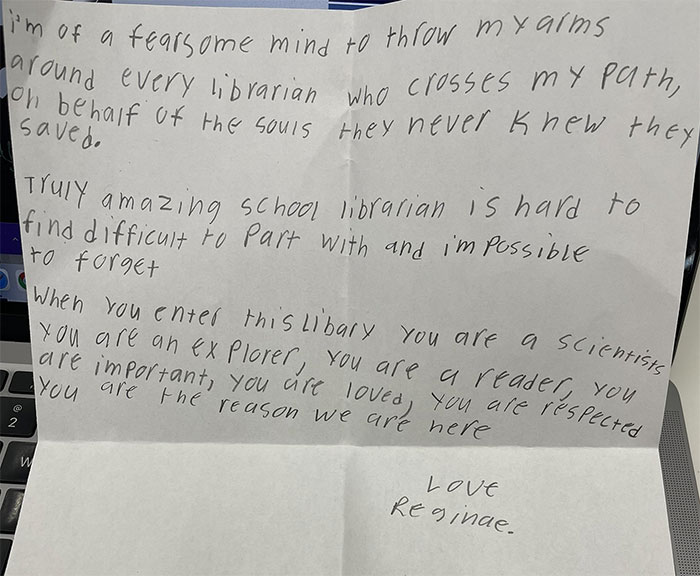 i'm of a fearsome mind to throw my arms
around every librarian who crosses my path,
on behalf of the souls they never knew they
saved.
Truly amazing school librarian is hard to
find difficult to part with and impossible
to forget
When you enter this libary you are a scientists
you are an explorer, you are a reader, you
are important, you are loved, you are respected
you are the reason we are here
Love
Reginae.
@
2
W